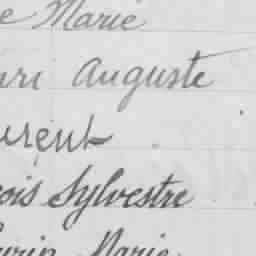 e Marie
nri Auguste
urent
çois Sylvestre
urin Marie